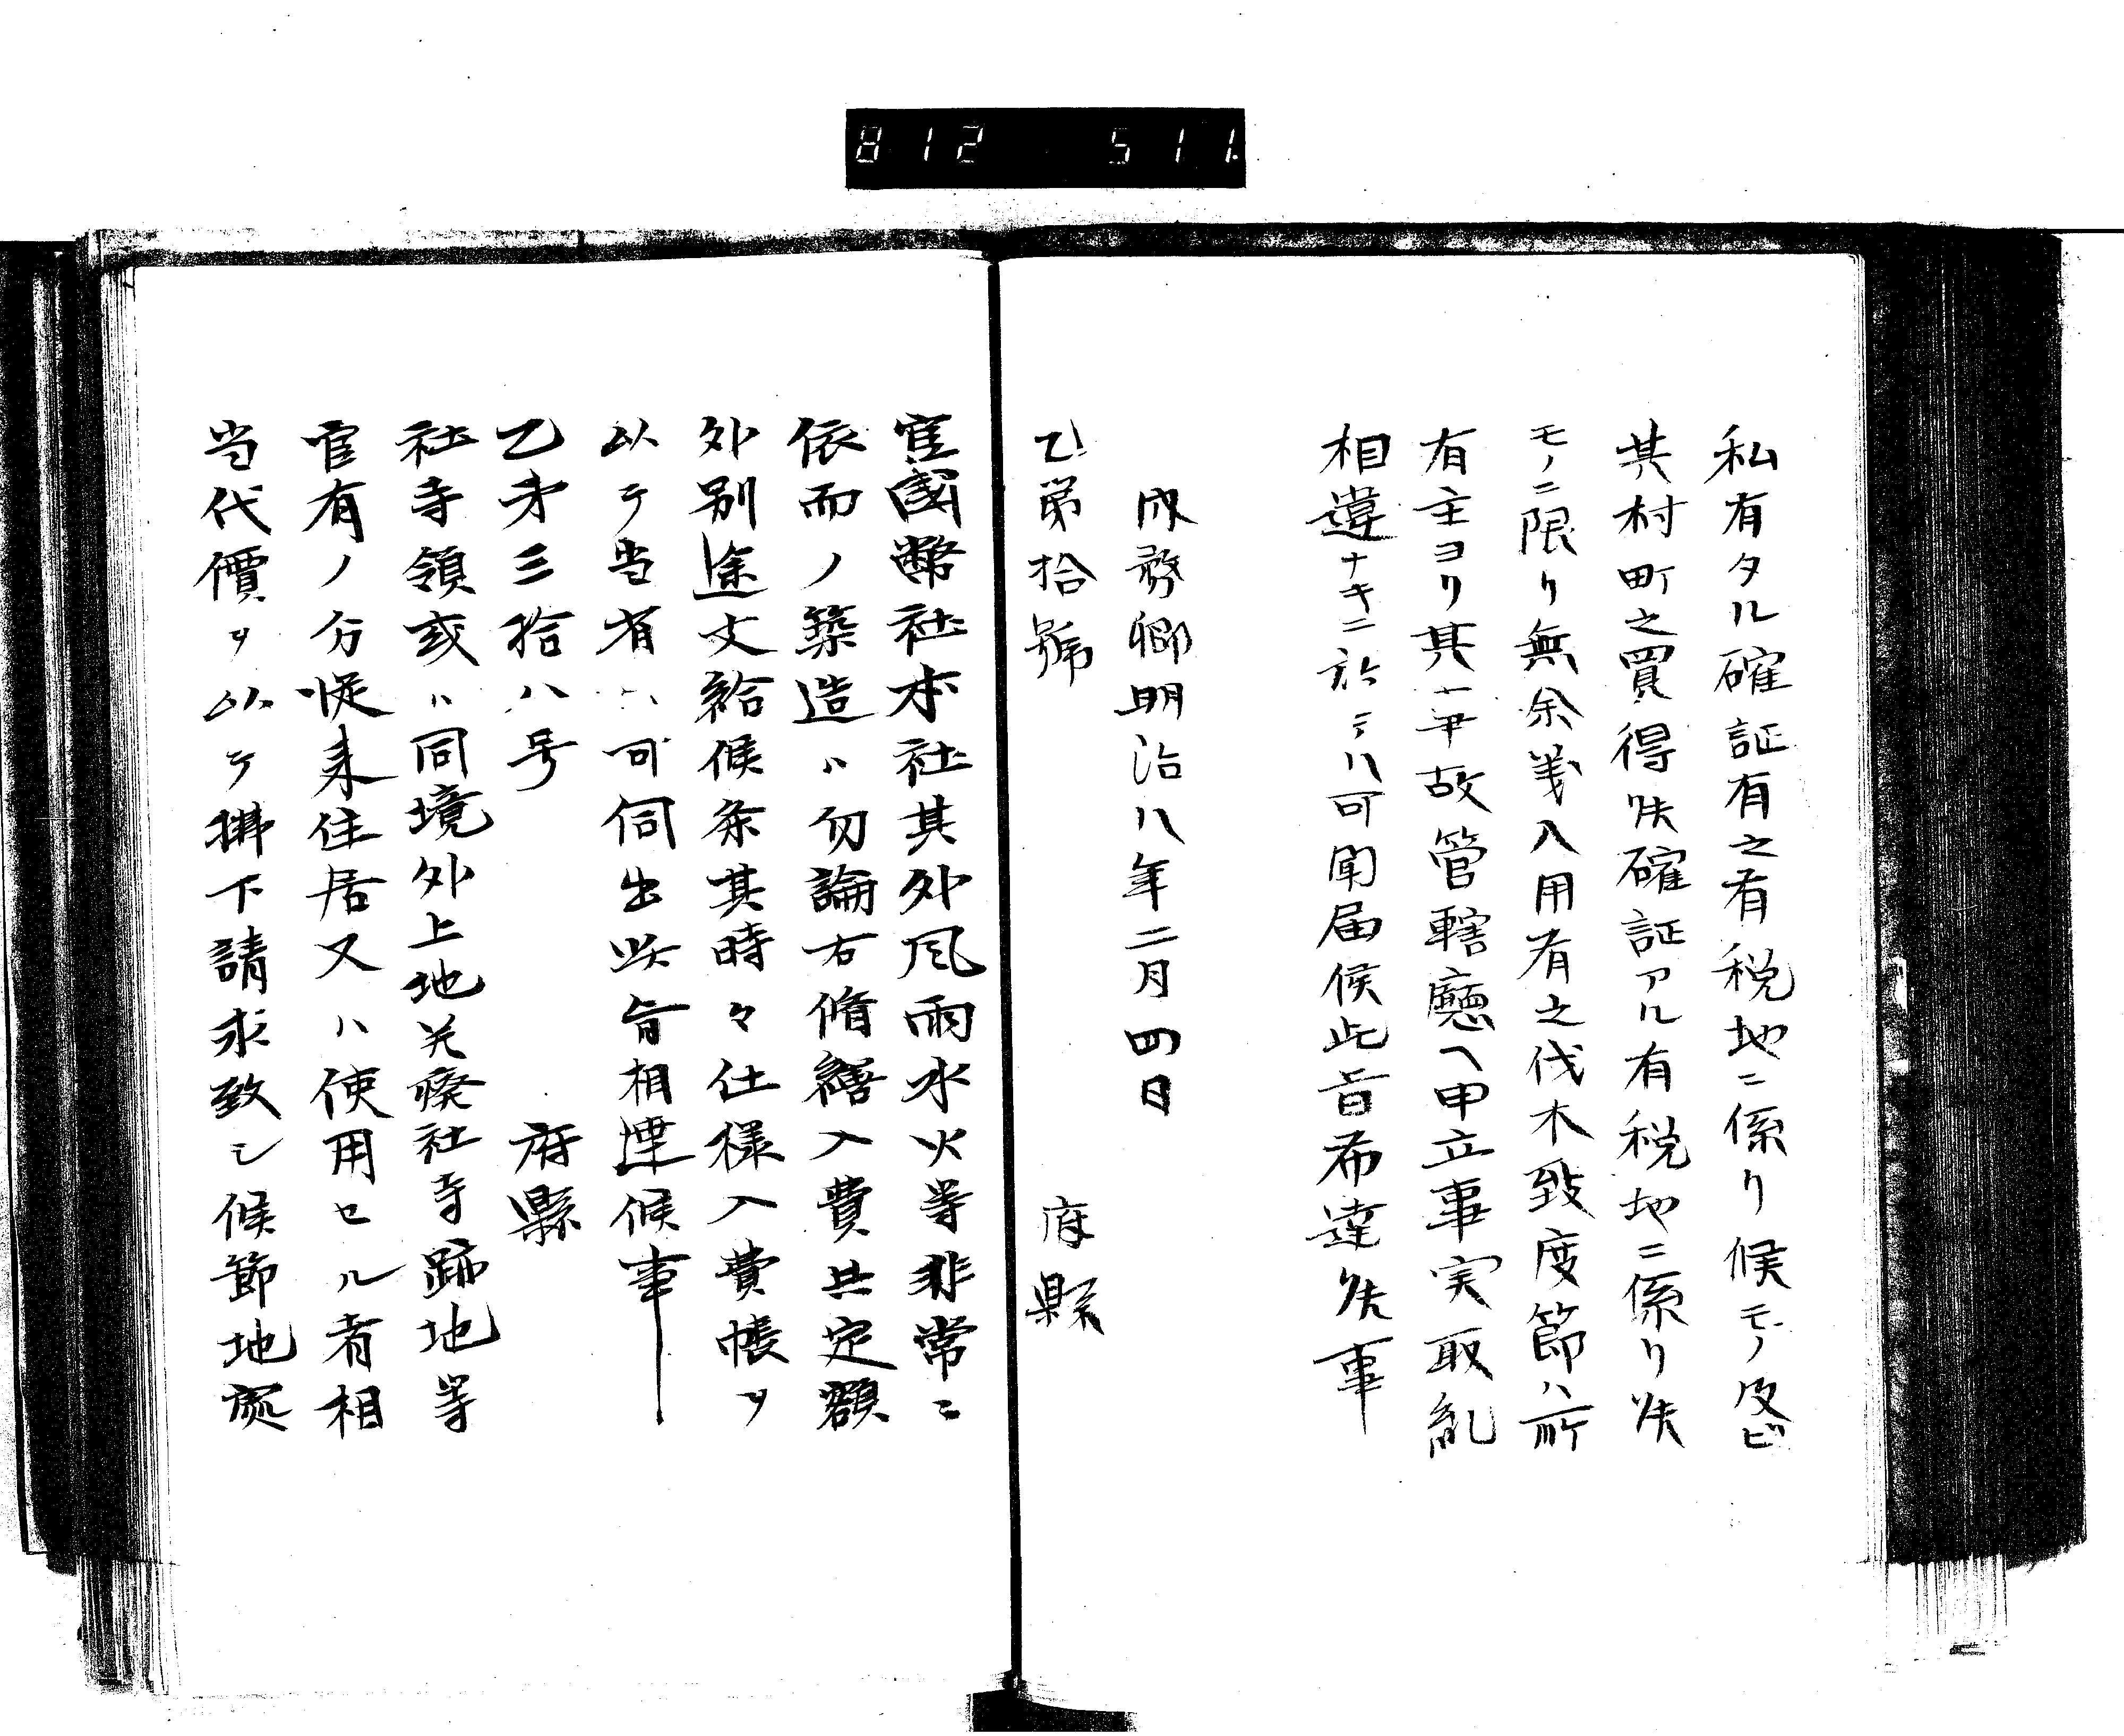 812 511.
私有タル確証有之有税地ニ係リ候モノ及ビ
其村町之買得候確証アル有税地ニ係リ候
モノニ限リ無余義入用有之伐木致度節ハ所
有主ヨリ其事故管轄廳ヘ申立事実取糺
相違ナキニ於テハ可聞届候此旨布達候事
務卿明治八年二月四日
乙第拾號 府縣
官國幣社本社其外風雨水火等非常ニ
依而ノ築造ハ勿論右脩繕入費共定額
外別途支給候条其時々仕様入費帳ヲ
以テ当省ヘ可伺出此旨相達候事
乙第三拾八号 府縣
社寺領或ハ同境外上地并廃社寺跡地等
官有ノ分従来住居又ハ使用セル者相
当代價ヲ以テ拂下請求致シ候節地處